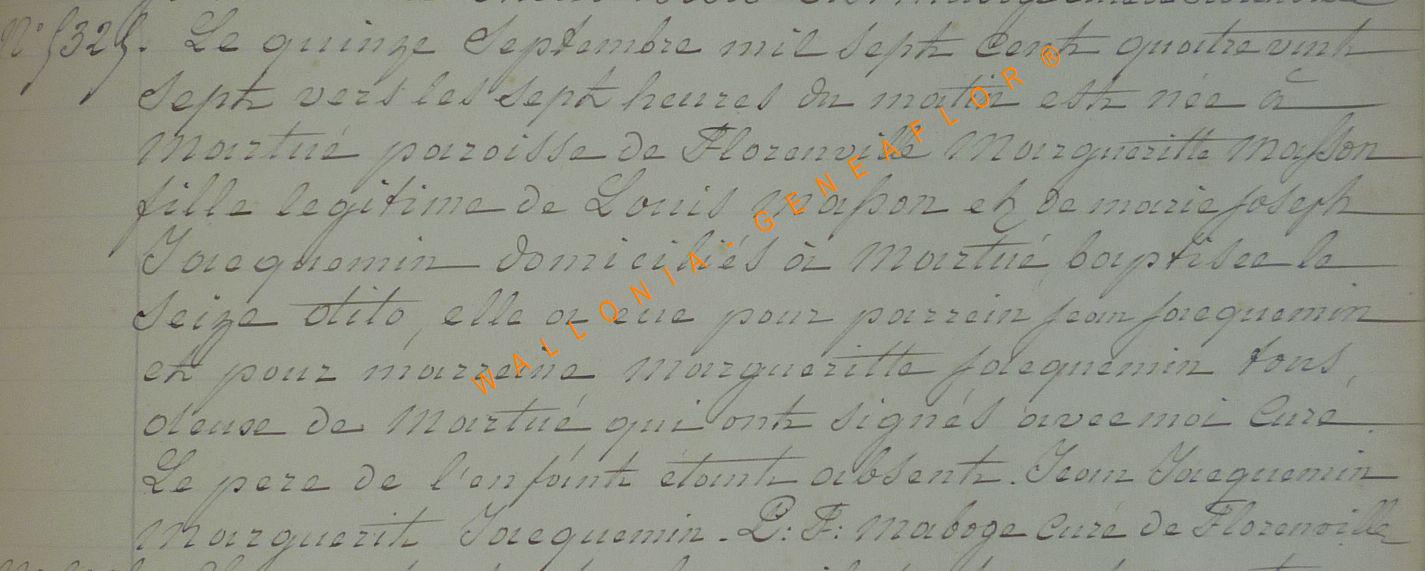 N° 5325. Le quinze Septembre mil sept cent quatre vint
sept vers les sept heures du matin est née à
Martué paroisse de Florenville Margueritte Masson
fille legitime de Louis Masson et de marie joseph
Jacquemin domiciliés à Martué baptisee le
seize dito, elle a eue pour parrein jean jacquemin
et pour marreine Margueritte jacquemin tous
deuse de Martué qui ont signés avec moi Curé.
Le pere de l'enfant étant absent. Jean Jacquemin
Marguerit Jacquemin. P: F: Maboge Curé de Florenville
WALLONIA - GENEAFLOR ®